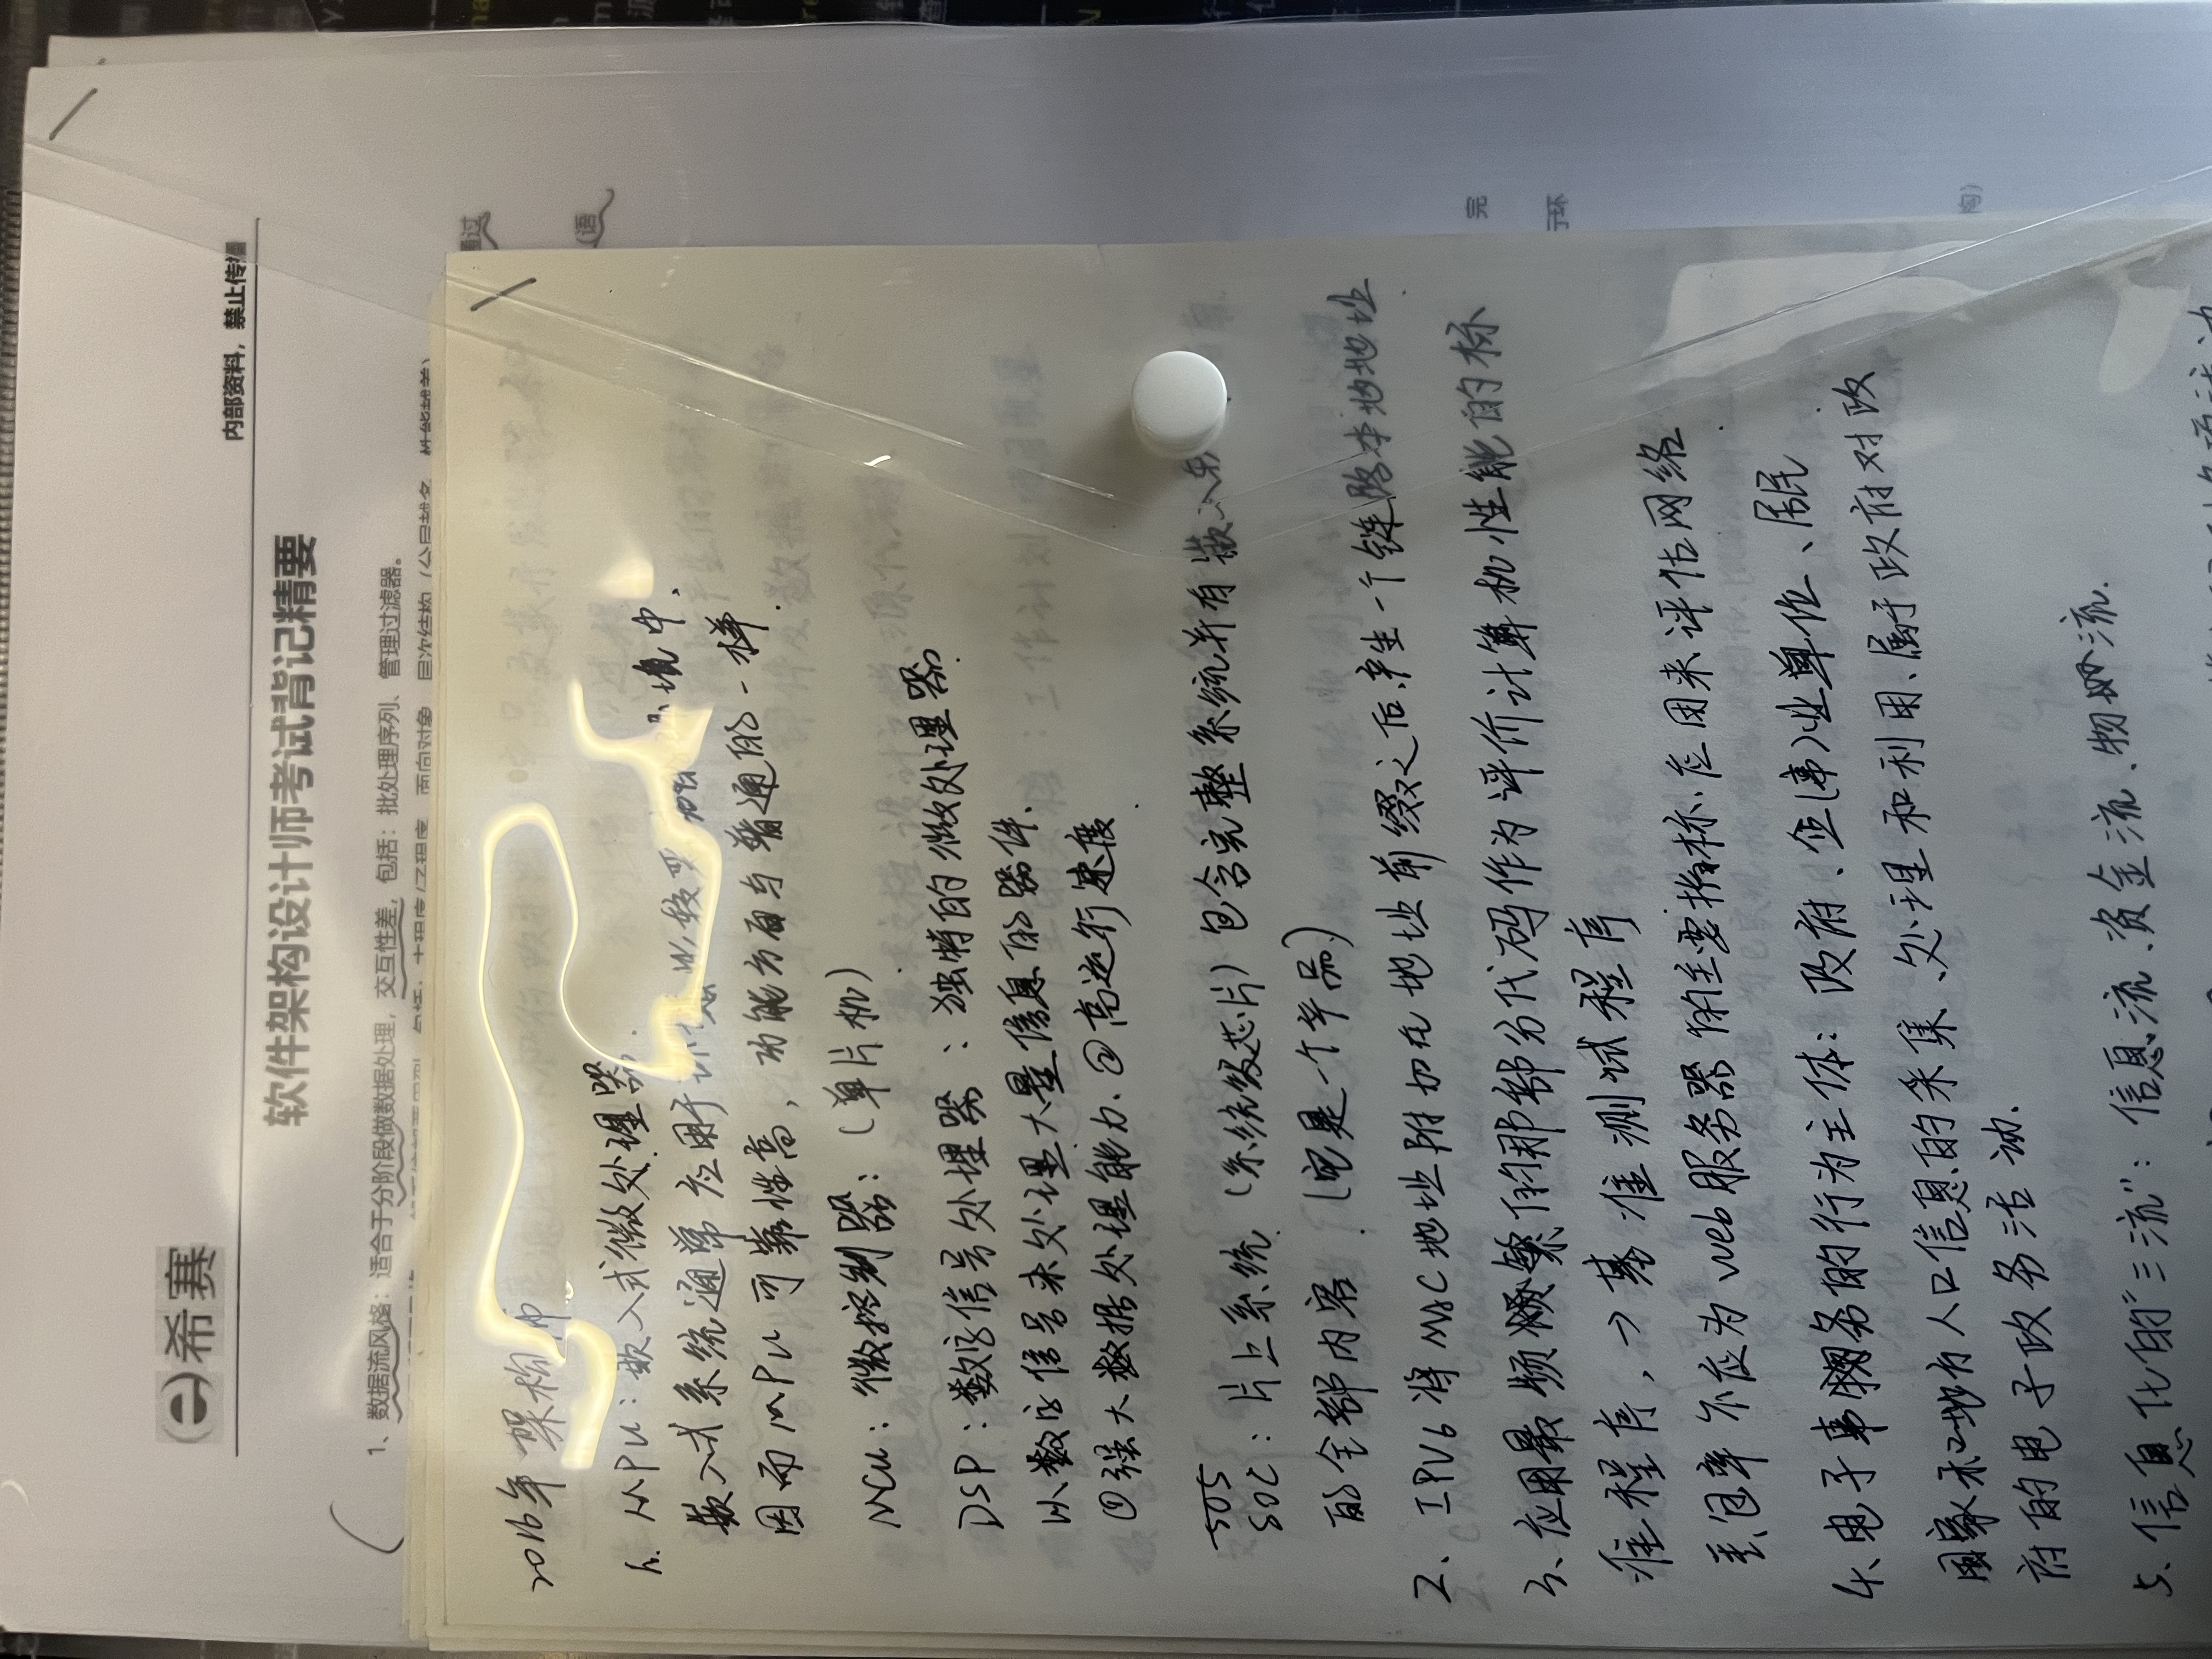 希赛
内部资料，禁止传播
软件架构设计师考试背记精要
1、数据流风格：适合于分阶段做数据处理，交互性差，包括：批处理序列、管理过滤器。
通过
(语
完
环
构)
2016年 架构师
1. MPU：嵌入式微处理器.
嵌入式系统通常应用于 比较恶 境中,
因而MPU可靠性高, 功能方面与普通的一样.
MCU：微控制器：(单片机)
DSP：数字信号处理器：独特的微处理器.
以数字信号来处理大量信息的器件.
①强大数据处理能力、②高运行速度.
SOC：片上系统 (系统级芯片) 包含完整系统并有嵌入
的全部内容. (它是一个产品)
2、IPV6 将MAC地址附加在地址前缀之后,产生一个链路本地地址.
3、应用最频繁的那部分代码作为评价计算机性能的标
准程序, → 基准测试程序
丢包率不应为web服务器的主要指标,应用来评估网络.
4、电子事务的行为主体：政府、企(事)业单位、居民
国家和地方人口信息的采集、处理和利用、属于政府对政
府的电子政务活动.
5、信息化的"三流"：信息流、资金流、物流.